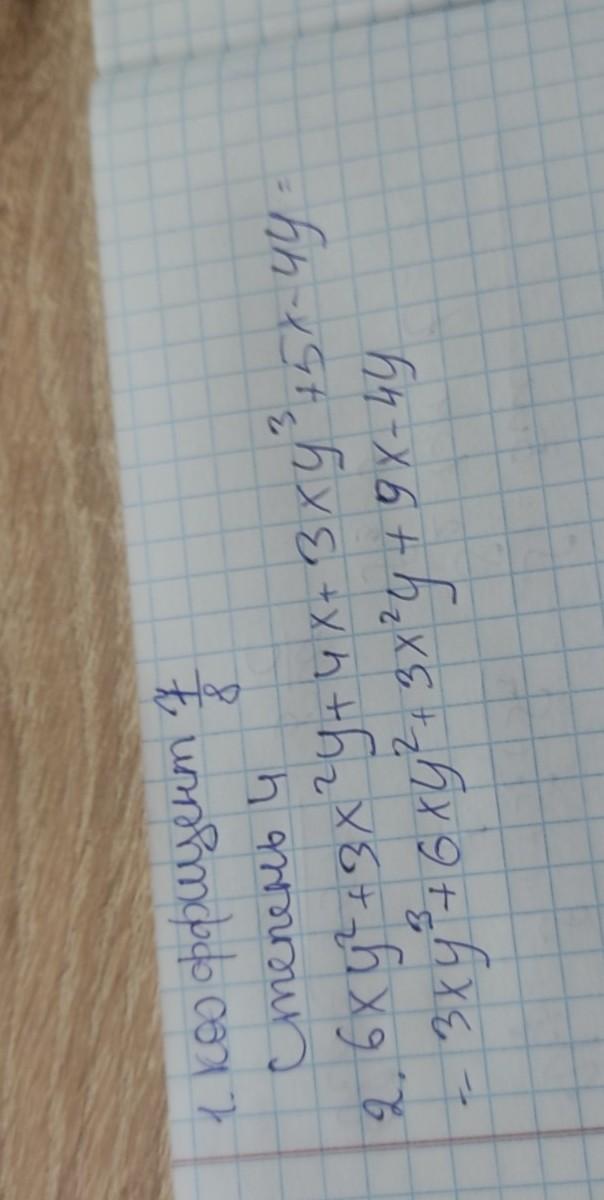 1. Коэффициент 7/8
Степень 4
2. 6xy²+3x²y+4x+3xy³+5x-4y=
= 3xy³+6xy²+3x²y+9x-4y